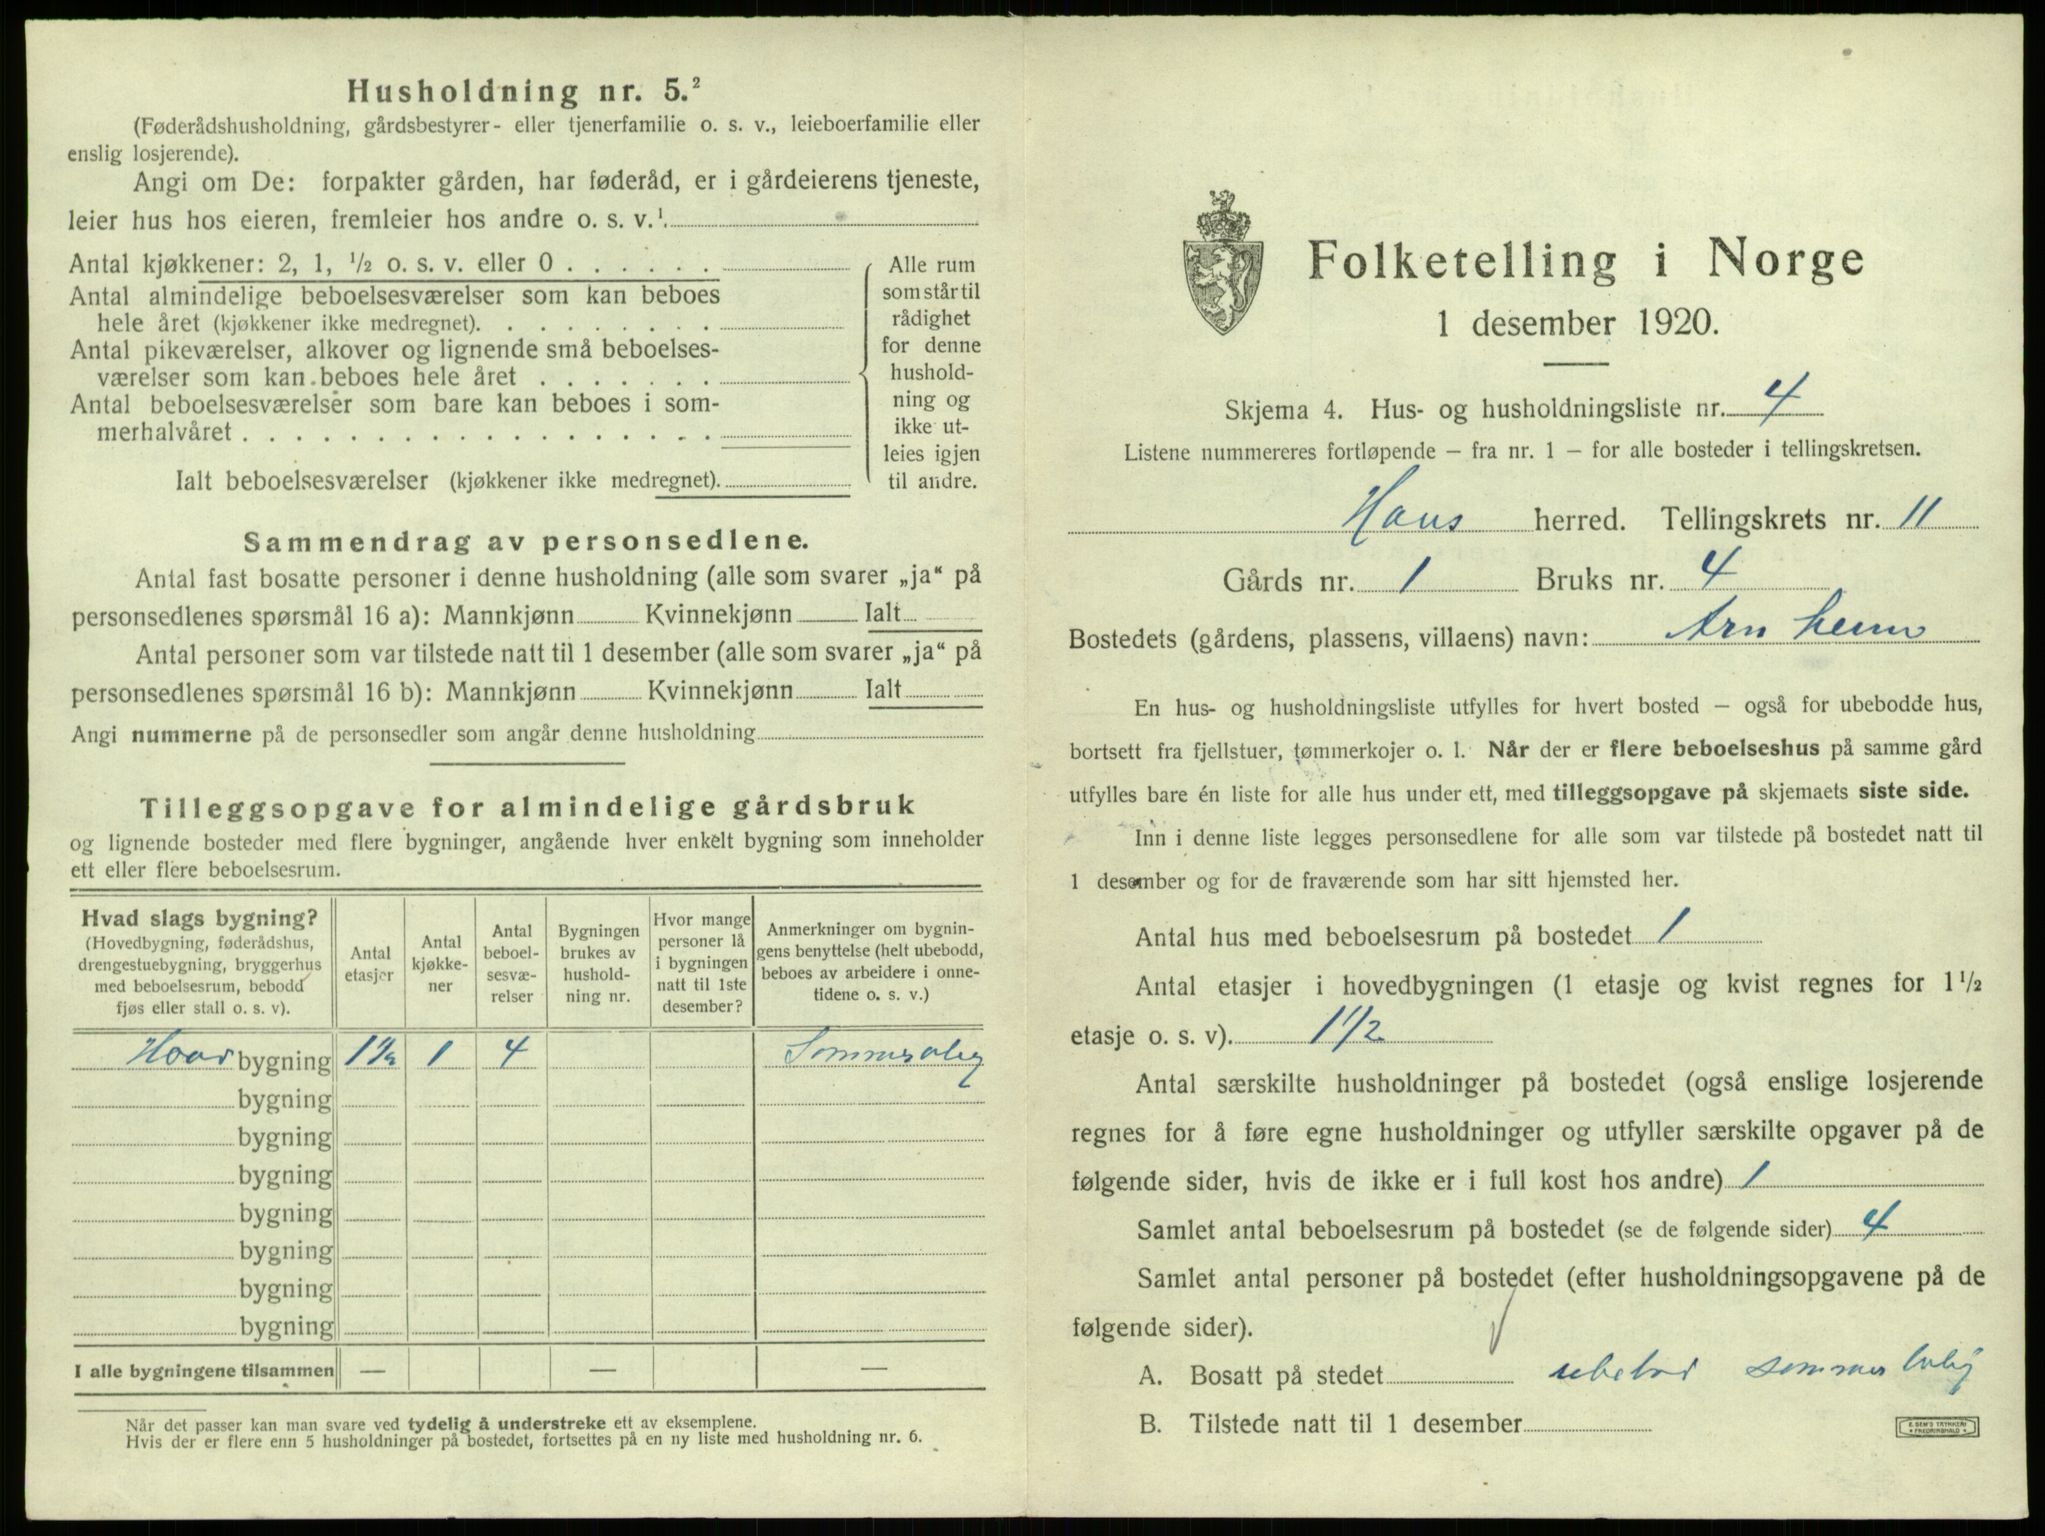 Husholdning nr. 5.²
(Føderådshusholdning, gårdsbestyrer- eller tjenerfamilie o. s. v., leieboerfamilie eller
enslig losjerende).
Angi om De: forpakter gården, har føderåd, er i gårdeierens tjeneste,
leier hus hos eieren, fremleier hos andre o. s. v.¹.
Antal kjøkkener: 2, 1, ½ o. s. v. eller 0 . . . . . .
Antal almindelige beboelsesværelser som kan beboes
hele året (kjøkkener ikke medregnet). . . . . . . . .
Antal pikeværelser, alkover og lignende små beboelses-
værelser som kan beboes hele året . . . . . . .
Antal beboelsesværelser som bare kan beboes i som-
merhalvåret . . . . . . . . . . . . . . . . . .
Ialt beboelsesværelser (kjøkkener ikke medregnet).
Alle rum
som står til
rådighet
for denne
hushold-
ning og
ikke ut-
leies igjen
til andre.
Sammendrag av personsedlene.
Antal fast bosatte personer i denne husholdning (alle som svarer „ja“ på
personsedlenes spørsmål 16 a): Mannkjønn Kvinnekjønn Ialt
Antal personer som var tilstede natt til 1 desember (alle som svarer „ja“ på
personsedlenes spørsmål 16 b): Mannkjønn Kvinnekjønn Ialt
Angi nummerne på de personsedler som angår denne husholdning
Tilleggsopgave for almindelige gårdsbruk
og lignende bosteder med flere bygninger, angående hver enkelt bygning som inneholder
ett eller flere beboelsesrum.
Hvad slags bygning?
(Hovedbygning, føderådshus,
drengestuebygning, bryggerhus
med beboelsesrum, bebodd
fjøs eller stall o. s. v).
Antal
etasjer
Antal
kjøkke-
ner
Antal
beboel-
sesvæ-
relser
Bygningen
brukes av
hushold-
ning nr.
Hvor mange
personer lå
i bygningen
natt til 1ste
desember?
Anmerkninger om bygnin-
gens benyttelse (helt ubebodd,
beboes av arbeidere i onne-
tidene o. s. v.)
bygning 1½ 1 4
bygning
bygning
bygning
bygning
bygning
bygning
bygning
I alle bygningene tilsammen — — —
Når det passer kan man svare ved tydelig å understreke ett av eksemplene.
Hvis der er flere enn 5 husholdninger på bostedet, fortsettes på en ny liste med husholdning nr. 6.
Folketelling i Norge
1 desember 1920.
Skjema 4. Hus- og husholdningsliste nr. 4
Listene nummereres fortløpende — fra nr. 1 — for alle bosteder i tellingskretsen.
Haus herred. Tellingskrets nr. 11
Gårds nr. 1 Bruks nr. 4
Bostedets (gårdens, plassens, villaens) navn: Arnheim
En hus- og husholdningsliste utfylles for hvert bosted — også for ubebodde hus,
bortsett fra fjellstuer, tømmerkojer o. l. Når der er flere beboelseshus på samme gård
utfylles bare én liste for alle hus under ett, med tilleggsopgave på skjemaets siste side.
Inn i denne liste legges personsedlene for alle som var tilstede på bostedet natt til
1 desember og for de fraværende som har sitt hjemsted her.
Antal hus med beboelsesrum på bostedet 1
Antal etasjer i hovedbygningen (1 etasje og kvist regnes for 1½
etasje o. s. v). 1½
Antal særskilte husholdninger på bostedet (også enslige losjerende
regnes for å føre egne husholdninger og utfyller særskilte opgaver på de
følgende sider, hvis de ikke er i full kost hos andre) 1
Samlet antal beboelsesrum på bostedet (se de følgende sider) 4
Samlet antal personer på bostedet (efter husholdningsopgavene på de
følgende sider).
A. Bosatt på stedet ubebod
B. Tilstede natt til 1 desember
E. SEM'S TRYKKERI
FREDRIKSHALD